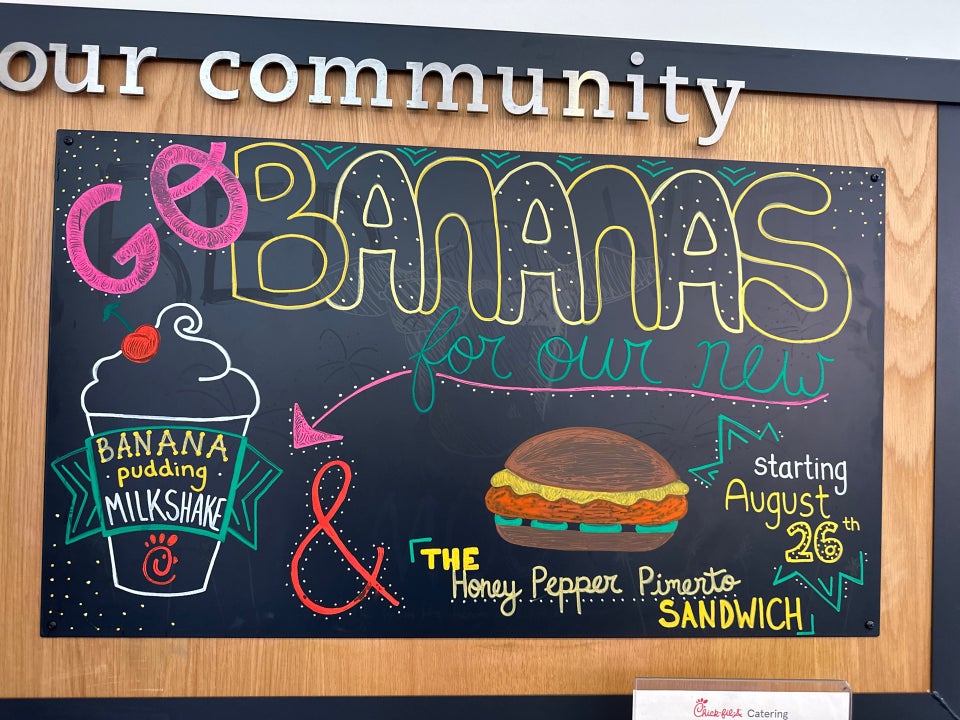 our community
GO BANANAS
for our new
BANANA
pudding
MILKSHAKE
&
THE
Honey Pepper Pimento
SANDWICH
starting
August
26th
Chick-fil-A Catering